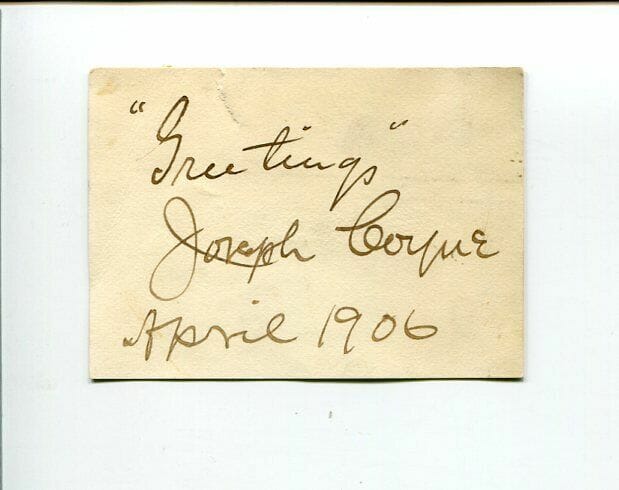 "Greetings"
Joseph Coyne
April 1906